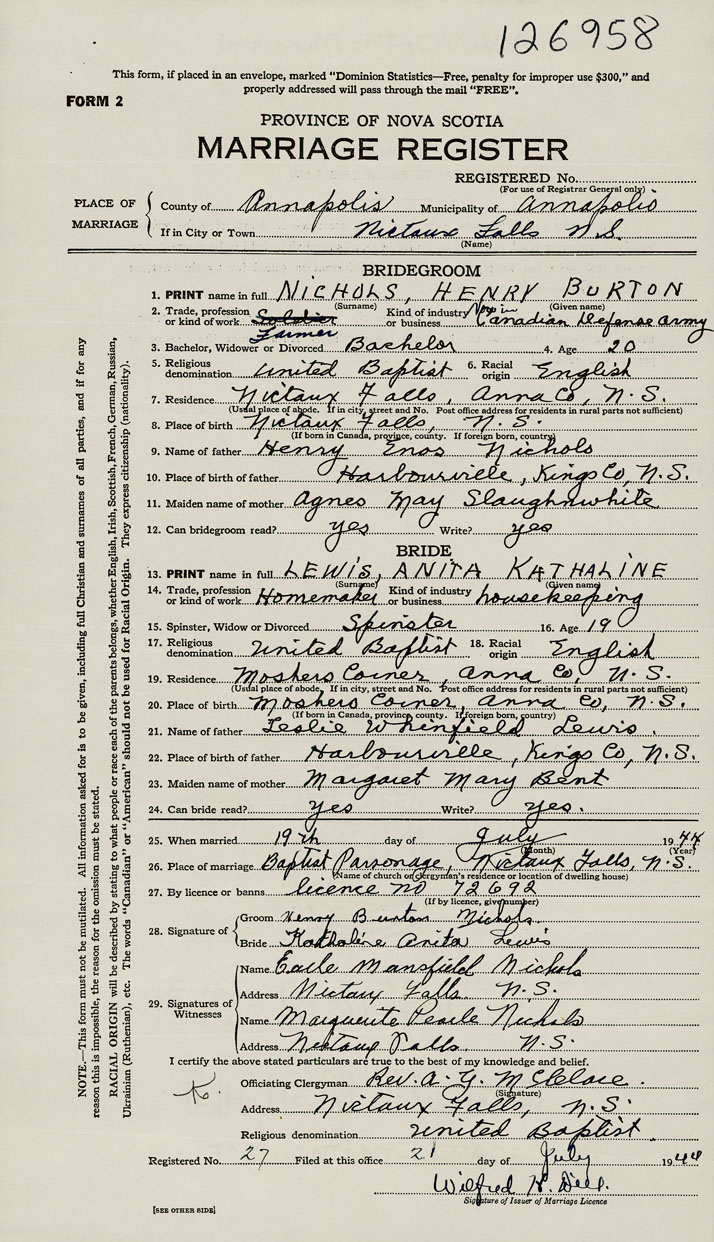 126958
This form, if placed in an envelope, marked "Dominion Statistics—Free, penalty for improper use $300," and
properly addressed will pass through the mail "FREE".
FORM 2
PROVINCE OF NOVA SCOTIA
MARRIAGE REGISTER
REGISTERED No.
(For use of Registrar General only)
PLACE OF MARRIAGE
County of Annapolis Municipality of Annapolis
If in City or Town Nictaux Falls N.S.
(Name)
BRIDEGROOM
1. PRINT name in full NICHOLS, HENRY BURTON
(Surname) (Given name)
2. Trade, profession or kind of work Soldier Farmer Kind of industry or business Now in Canadian Defense army
3. Bachelor, Widower or Divorced Bachelor 4. Age 20
5. Religious denomination United Baptist 6. Racial origin English
7. Residence Nictaux Falls, Anna Co, N.S.
(Usual place of abode. If in city, street and No. Post office address for residents in rural parts not sufficient)
8. Place of birth Nictaux Falls, N.S.
(If born in Canada, province, county. If foreign born, country)
9. Name of father Henry Enos Nichols
10. Place of birth of father Harbourville, Kings Co, N.S.
11. Maiden name of mother Agnes May Slaughnwhite
12. Can bridegroom read? yes Write? yes
BRIDE
13. PRINT name in full LEWIS, ANITA KATHALINE
(Surname) (Given name)
14. Trade, profession or kind of work Homemaker Kind of industry or business housekeeping
15. Spinster, Widow or Divorced Spinster 16. Age 19
17. Religious denomination United Baptist 18. Racial origin English
19. Residence Moshers Corner, Anna Co, N.S.
(Usual place of abode. If in city, street and No. Post office address for residents in rural parts not sufficient)
20. Place of birth Moshers Corner, Anna Co, N.S.
(If born in Canada, province, county. If foreign born, country)
21. Name of father Leslie Whinfield Lewis.
22. Place of birth of father Harbourville, Kings Co, N.S.
23. Maiden name of mother Margaret Mary Bent
24. Can bride read? yes Write? yes.
25. When married 19th day of July 1944
(Month) (Year)
26. Place of marriage Baptist Parsonage, Nictaux Falls, N.S.
(Name of church or clergyman's residence or location of dwelling house)
27. By licence or banns licence no 72692
(If by licence, give number)
28. Signature of
Groom Henry Burton Nichols.
Bride Kathaline Anita Lewis
29. Signatures of Witnesses
Name Earle Mansfield Nichols
Address Nictaux Falls. N.S.
Name Marguerite Pearle Nichols
Address Nictaux Falls N.S.
I certify the above stated particulars are true to the best of my knowledge and belief.
Officiating Clergyman Rev. A. G.
(Signature)
Address Nictaux Falls, N.S.
Religious denomination United Baptist
Registered No. 27 Filed at this office 21 day of July 1944
Wilfred
Signature of Issuer of Marriage Licence
[SEE OTHER SIDE]
NOTE.—This form must not be mutilated. All information asked for is to be given, including full Christian and surnames of all parties, and if for any
reason this is impossible, the reason for the omission must be stated.
RACIAL ORIGIN will be described by stating to what people or race each of the parents belongs, whether English, Irish, Scottish, French, German, Russian,
Ukrainian (Ruthenian), etc. The words "Canadian" or "American" should not be used for Racial Origin. They express citizenship (nationality).